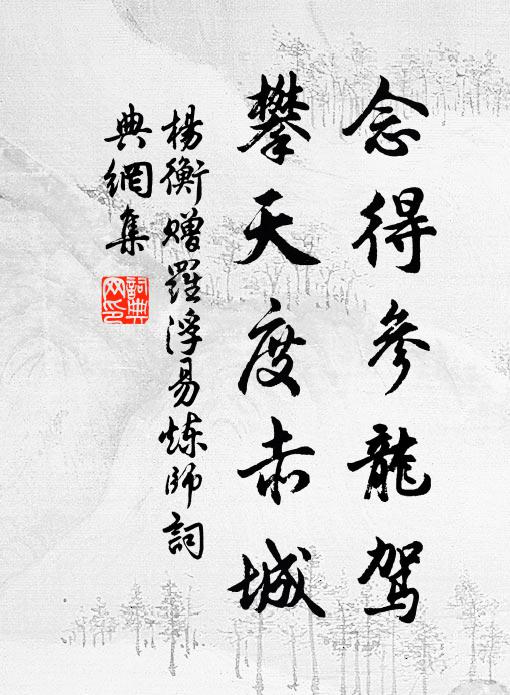 念得参龍駕
攀天度赤城
楊衡贈羅浮易炼師詞
典網集
詞典
网印